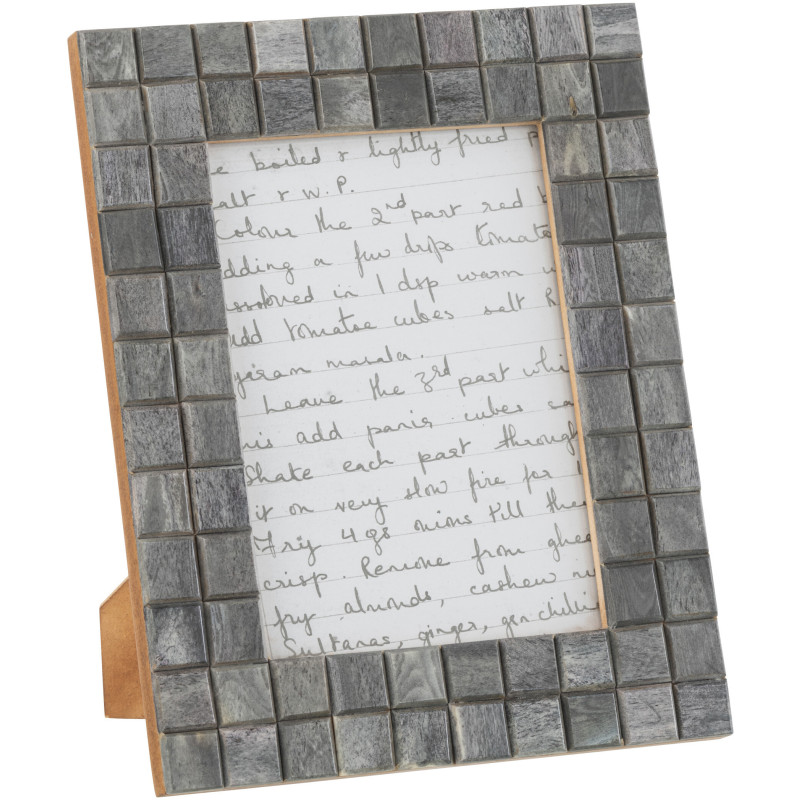 e boiled & lightly fried p
alt & W.P.
Colour the 2nd part red b
dding a few drops tomato
ssolved in 1 dsp warm w
udd tomatoe cubes salt R
garam masala.
Leave the 3rd part whi
his add panir cubes sa
Shake each part through
it on very slow fire for 1
Fry 4 gs onions till the
crisp. Remove from ghee
fry, almonds, cashew nu
Sultanas, ginger, gen chilli